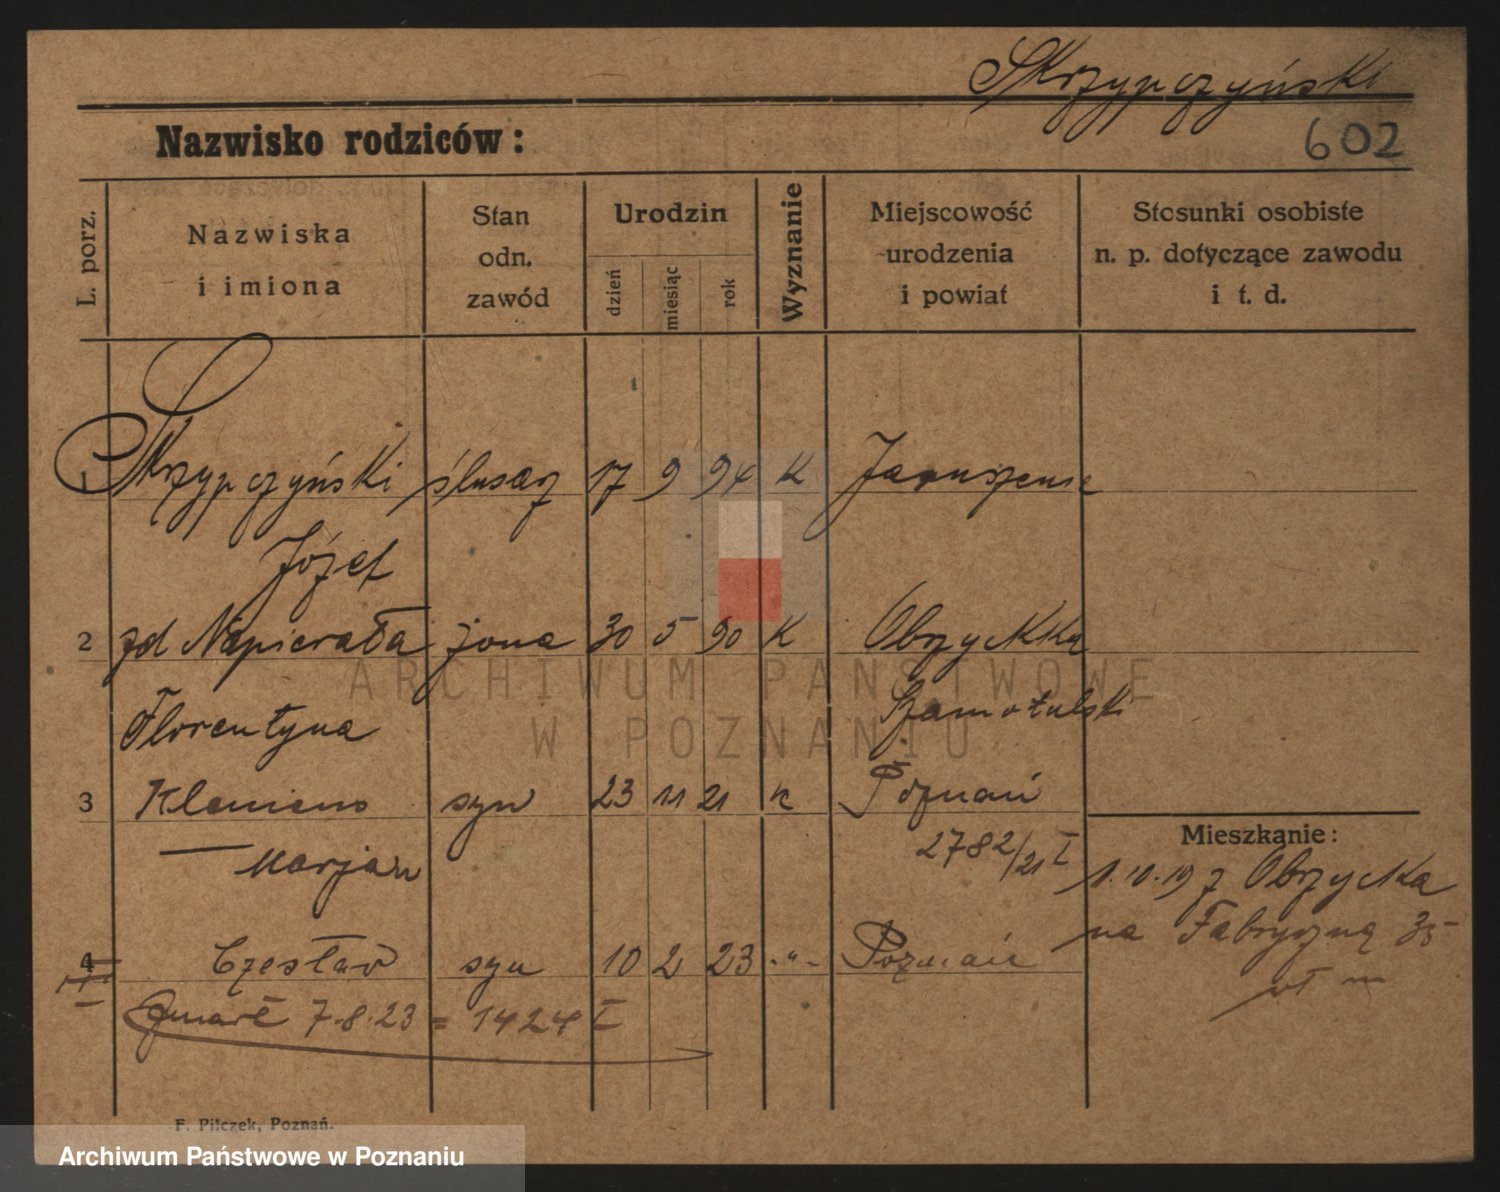 Skrzypczyński
602
Nazwisko rodziców:
L. porz.
Nazwiska
i imiona
Stan
odn.
zawód
Urodzin
dzień
miesiąc
rok
Wyznanie
Miejscowość
urodzenia
i powiat
Stosunki osobiste
n. p. dotyczące zawodu
i t. d.
1 Skrzypczyński ślusarz 17 9 94 K
Józef
2 zd Napierała żona 30 5 90 K Obrzycko
Florentyna Szamotulski
3 Klemens syn 23 11 21 k Poznań
Marjan 2782/21 I
Mieszkanie:
1.10.19 z Obrzycka
na Fabryczną 35
4 Czesław syn 10 2 23 -"- Poznań
Zmarł 7.8.23 = 1424 I
F. Pilczek, Poznań.
ARCHIWUM PAŃSTWOWE
W POZNANIU
Archiwum Państwowe w Poznaniu